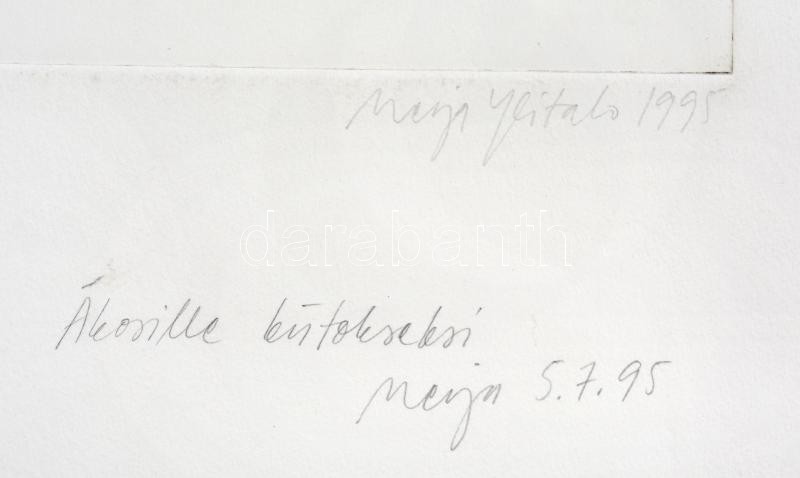 Merja Ylitalo 1995
darabanth
Ákosille kiitokseksi
Merja 5.7.95